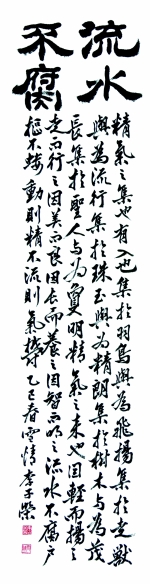 流水
不腐
精氣之集也有入也集於羽鳥與為飛揚集於走獸
與為流行集於珠玉與為精朗集於樹木與為茂
長集於聖人與為敻明精氣之來也因輕而揚之
走而行之因美而良因長而養之因智而明之流水不腐戶
樞不螻動則精不流則氣鬱 乙巳春雲情李子榮